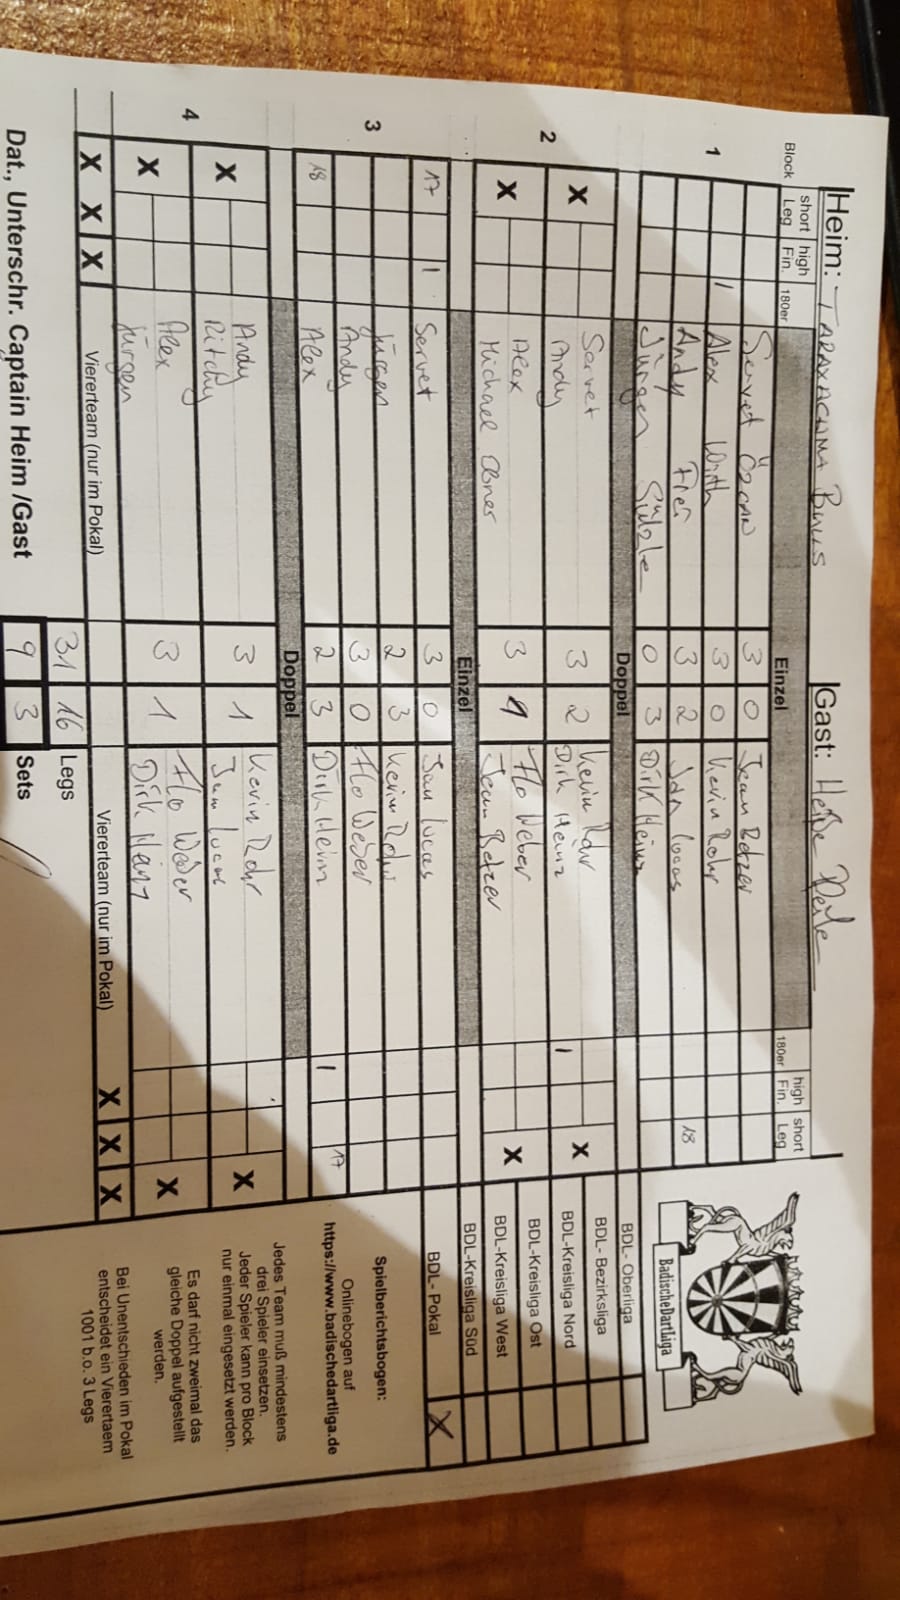 Heim: TARAXACUMA BULLS Gast: Heiße Pfeile
Block short Leg high Fin. 180er Einzel 180er high Fin. short Leg
1
Servet Özcan 3 0 Jean Betzer
1 Alex Wirth 3 0 Kevin Rohr
Andy Frei 3 2 Jan Lucas 18
Jürgen Sülzle 0 3 Dirk Heinz
Doppel
2
X Servet 3 2 Kevin Rohr 1 X
Andy Dirk Heinz
X Alex 3 1 Flo Weber X
Michael Ebner Jean Betzer
Einzel
3
17 1 Servet 3 0 Jan Lucas
Jürgen 2 3 Kevin Rohr
Andy 3 0 Flo Weber
18 Alex 2 3 Dirk Heinz 1 17
Doppel
4
X Andy 3 1 Kevin Rohr X
Ritchy Jan Lucas
X Alex 3 1 Flo Weber X
Jürgen Dirk Heinz
X X X Viererteam (nur im Pokal) Viererteam (nur im Pokal) X X X
31 16 Legs
9 3 Sets
Dat., Unterschr. Captain Heim /Gast
BadischeDartLiga
BDL- Oberliga
BDL- Bezirksliga
BDL-Kreisliga Nord
BDL-Kreisliga Ost
BDL-Kreisliga West
BDL-Kreisliga Süd
BDL- Pokal X
Spielberichtsbogen:
Onlinebogen auf
https://www.badischedartliga.de
Jedes Team muß mindestens
drei Spieler einsetzen.
Jeder Spieler kann pro Block
nur einmal eingesetzt werden.
Es darf nicht zweimal das
gleiche Doppel aufgestellt
werden.
Bei Unentschieden im Pokal
entscheidet ein Vierertaem
1001 b.o. 3 Legs